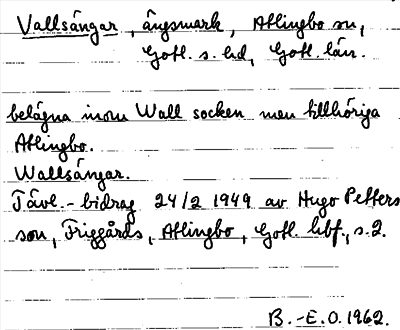 Vallsängar, ängsmark, Atlingbo sn,
Gotl. s. hd, Gotl. län.
belägna inom Wall socken men tillhöriga
Atlingbo.
Wallsängar.
Tävl.-bidrag 24/2 1949 av Hugo Petters
son, Friggårds, Atlingbo, Gotl. hbf., s. 2.
B.-E.O. 1962.